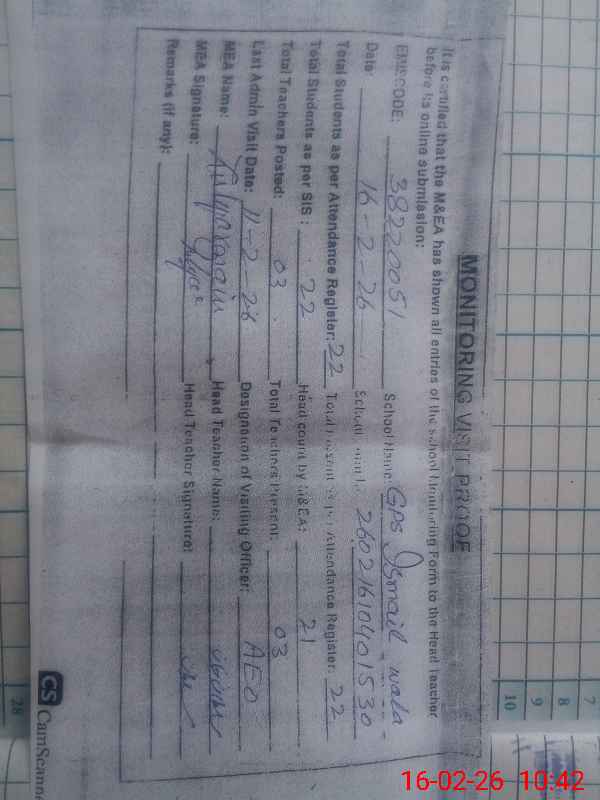 MONITORING VISIT PROOF
It is certified that the M&EA has shown all entries of the school Monitoring Form to the Head Teacher
before its online submission:
EMISCODE: 38220051 School Name: GPS Ismail wala
Date: 16-2-26 School 2602161040 1530
Total Students as per Attendance Register: 22 Total Present as per Attendance Register: 22
Total Students as per SIS: 22 Head count by M&EA: 21
Total Teachers Posted: 03 Total Teachers Present: 03
Last Admin Visit Date: 11-2-26 Designation of Visiting Officer: AEO
MEA Name: Head Teacher Name:
MEA Signature: Head Teacher Signature:
Remarks (if any):
10
9
8
7
28
CS CamScanne
16-02-26 10:42